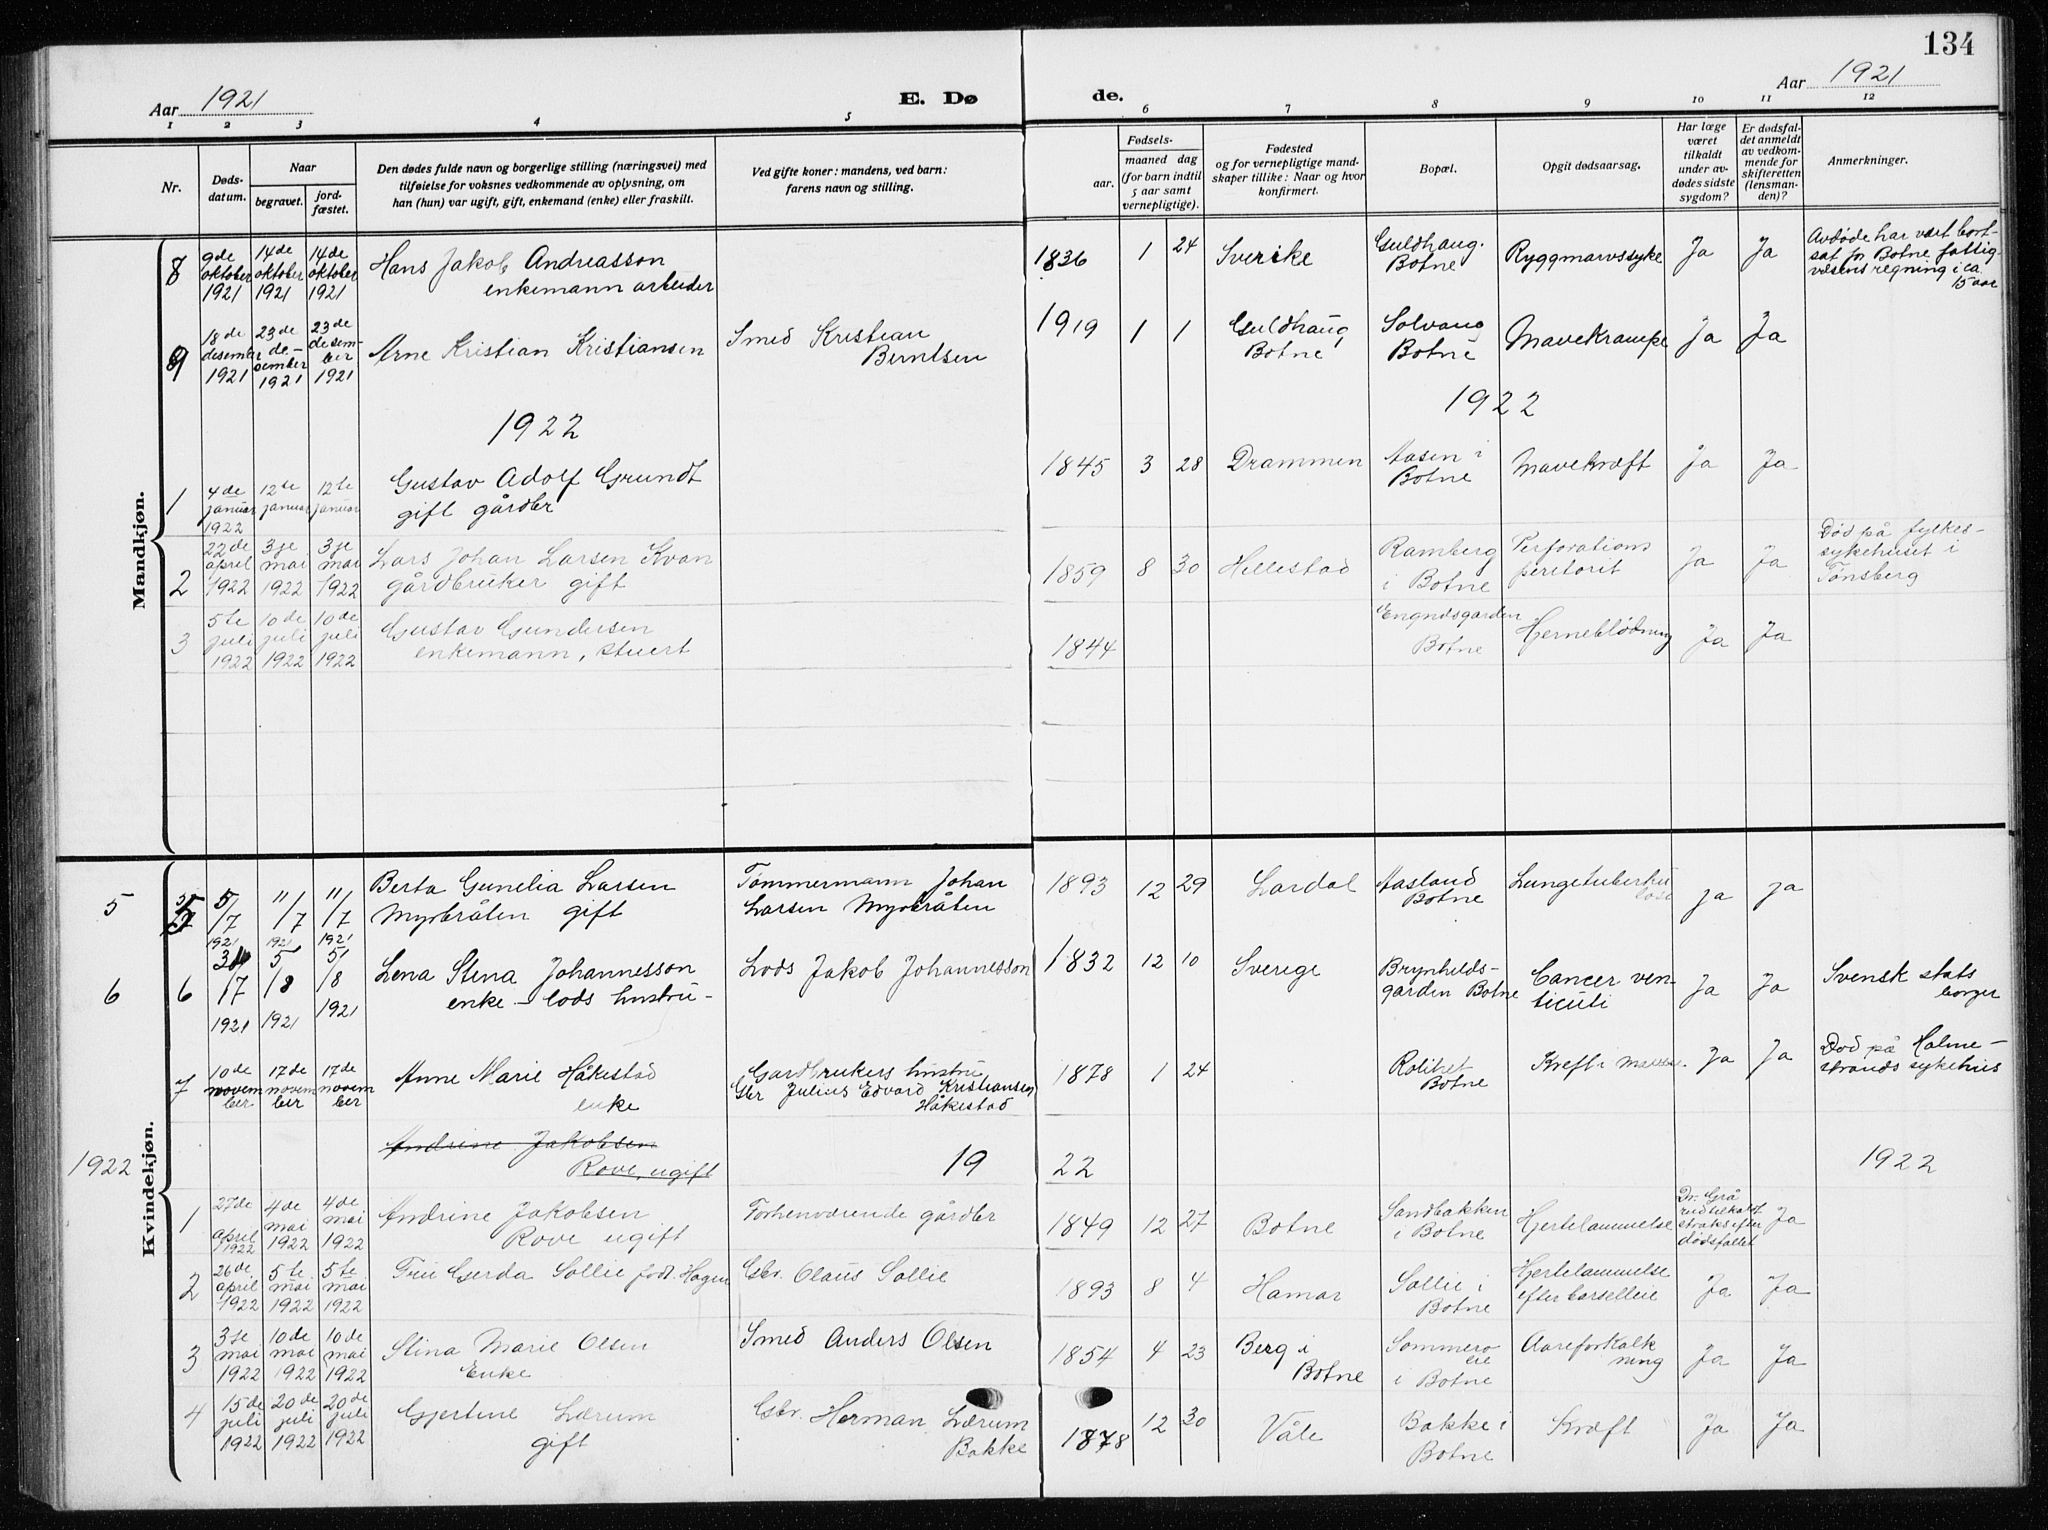 134
Aar 1921 E. Dø de. Aar 1921
1 2 3 4 5 6 7 8 9 10 11 12
Nr.
Døds-
datum.
Naar
begravet.
jord-
fæstet.
Den dødes fulde navn og borgerlige stilling (næringsvei) med
tilføielse for voksnes vedkommende av oplysning, om
han (hun) var ugift, gift, enkemand (enke) eller fraskilt.
Ved gifte koner: mandens, ved barn:
farens navn og stilling.
Fødsels-
aar.
maaned dag
(for barn indtil
5 aar samt
vernepligtige).
Fødested
og for vernepligtige mand-
skaper tillike: Naar og hvor
konfirmert.
Bopæl.
Opgit dødsaarsag.
Har læge
været
tilkaldt
under av-
dødes sidste
sygdom?
Er dødsfal-
det anmeldt
av vedkom-
mende for
skifteretten
(lensman-
den)?
Anmerkninger.
Mandkjøn.
8
9de
oktober
1921
14de
oktober
1921
14de
oktober
1921
Hans Jakob Andreasson
enkemann arbeider
1836 1 24
Sverike
Guldhaug.
Botne
Ryggmarvssyke
Ja
Ja
Avdøde har vært bort-
sat for Botne fattig-
væsens regning i ca.
15 aar
9
18de
desember
1921
23de
de-
sember
1921
23de
desem-
ber
1921
Arne Kristian Kristiansen
Smed Kristian
Berntsen
1919 1 1
Guldhaug
Botne
Solvang
Botne
Mavekrampe
Ja
Ja
1922 1922
1
4de
januar
1922
12te
januar
12te
januar
Gustav Adolf Grundt
gift gårdbr
1845 3 28
Drammen
Aasen i
Botne
Mavekræft
Ja
Ja
2
22de
april
1922
3je
mai
1922
3je
mai
1922
Lars Johan Larsen Kvan
gårdbruker gift
1859 8 30
Hillestad
Ramberg
i Botne
Perforations
peritonit
Ja
Ja
Død på fylkes-
sykehuset i
Tønsberg
3
5te
juli
1922
10de
juli
1922
10de
juli
1922
Gustav Gundersen
enkemann, stuert
1844
Botne
Hjerneblødning
Ja
Ja
Kvindekjøn.
5
5
5/7
1921
11/7
1921
11/7
1921
Berta Gunelia Larsen
Myrbråten gift
Tømmermann Johan
Larsen Myrbråten
1893 12 29
Lardal
Aasland
Botne
Lungetuberku
lose
Ja
Ja
6
6
31/7
1921
5/8
1921
5/8
1921
Lena Stina Johannesson
enke - lods hustru -
Lods Jakob Johannesson
1832 12 10
Sverige
Brynhilds-
garden Botne
Cancer ven-
ticuli
Ja
Ja
Svensk stats
borger
7
10de
novem
ber
17de
novem
ber
17de
novem
ber
Anne Marie Håkestad
enke
Gardbrukers hustru
Gbr Julius Edvard Kristiansen
Håkestad
1878 1 24
Rolihet
Botne
Kreft i
Ja
Ja
Død på Holme-
strands sykehus
Andrine Jakobsen
Rove, ugift
1922 1922 1922
1
27de
april
1922
4de
mai
1922
4de
mai
1922
Andrine Jakobsen
Rove ugift
Forhenværende gårdbr
1849 12 27
Botne
Sandbakken
i Botne
Hjertelammelse
Dr. Grå
rud tilkaldt
straks efter
dødsfallet
Ja
2
26de
april
1922
5te
mai
1922
5te
mai
1922
Fru Gerda Sollie født Hagen
Gbr. Olaus Sollie
1893 8 4
Hamar
Sollie i
Botne
Hjertelammelse
efter barselleie
Ja
Ja
3
3je
mai
1922
10de
mai
1922
10de
mai
1922
Stina Marie Olsen
Enke
Smed Anders Olsen
1854 4 23
Berg i
Botne
Sommero
lie
i Botne
Aareforkalk
ning
Ja
Ja
4
15de
juli
1922
20de
juli
1922
20de
juli
1922
Gjertine Lærum
gift
Gbr. Herman Lærum
Bakke
1878 12 30
Våle
Bakke i
Botne
Kræft
Ja
Ja